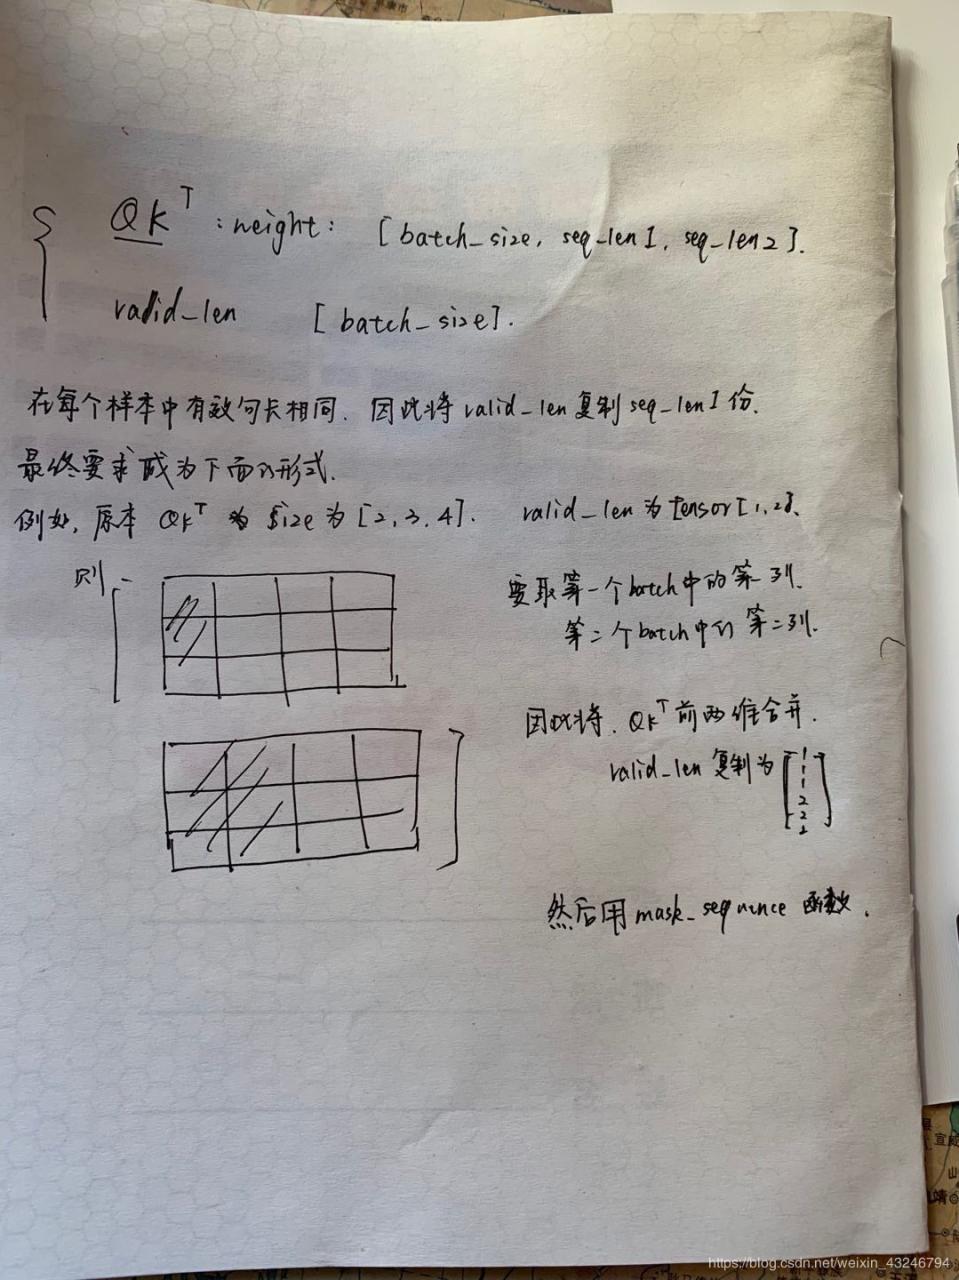 QK^T : weight: [batch_size, seq_len1, seq_len2].
valid_len [batch_size].
在每个样本中有效句长相同. 因此将 valid_len 复制 seq_len1 份.
最终要求成为下面的形式.
例如, 原本 QK^T 的 size 为 [2, 3, 4]. valid_len 为 tensor[1, 2].
则
要取第一个batch中的第一列.
第二个batch中的第二列.
因此将 QK^T 前两维合并.
valid_len 复制为
1
1
1
2
2
2
然后用 mask_sequence 函数.
宣威
山
靖
https://blog.csdn.net/weixin_43246794